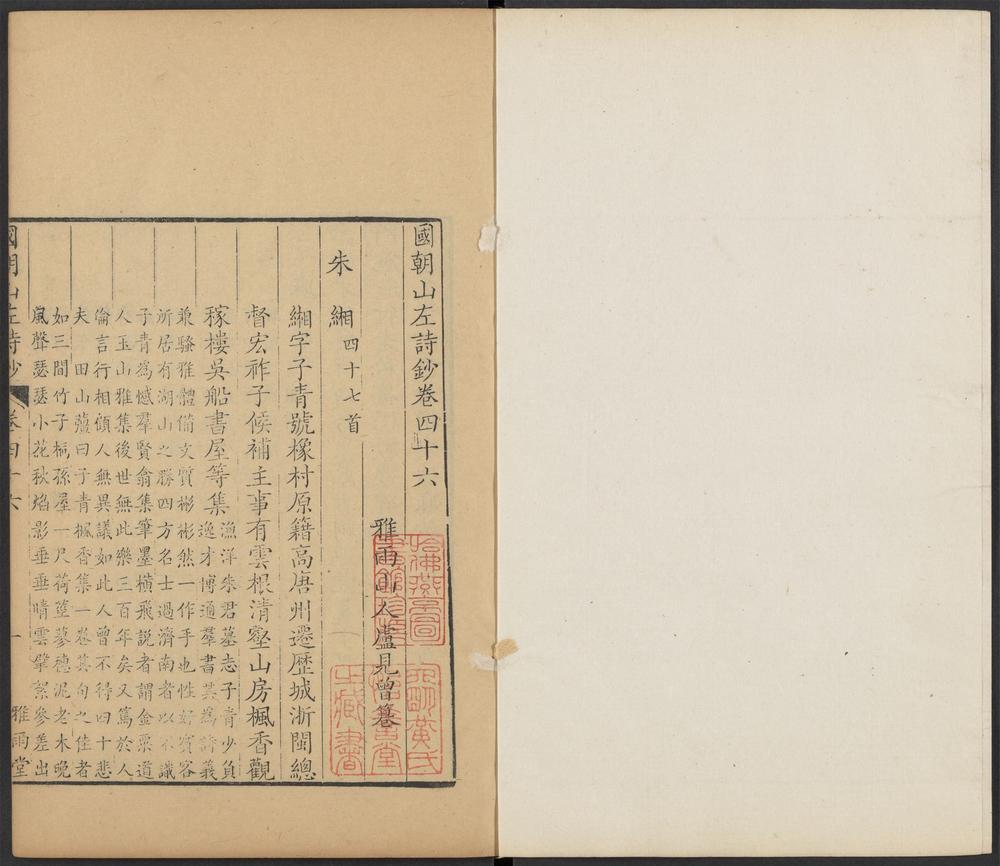 國朝山左詩鈔卷四十六
雅雨山人盧見曾纂
朱緗四十七首
緗字子青號橡村原籍高唐州遷歷城浙閩總
督宏祚子候補主事有雲根清壑山房楓香觀
稼樓吳船書屋等集漁洋朱君墓志子青少負
逸才博通羣書其為詩義
兼騷雅體備文質彬彬然一作手也性好賓客
所居有湖山之勝四方名士過濟南者以不識
子青為憾羣賢翕集筆墨橫飛說者謂金粟道
人玉山雅集後世無此樂三百年矣又篤於人
倫言行相顧人無異議如此人曾不得四十悲
夫 田山薑曰子青楓香集一卷其句之佳者
如三間竹子桃孫屋一尺荷莖蓼穗泥老木晚
風聲瑟瑟小花秋焰影垂垂晴雲擘絮參差出
國朝山左詩鈔 卷四十六 一 雅雨堂